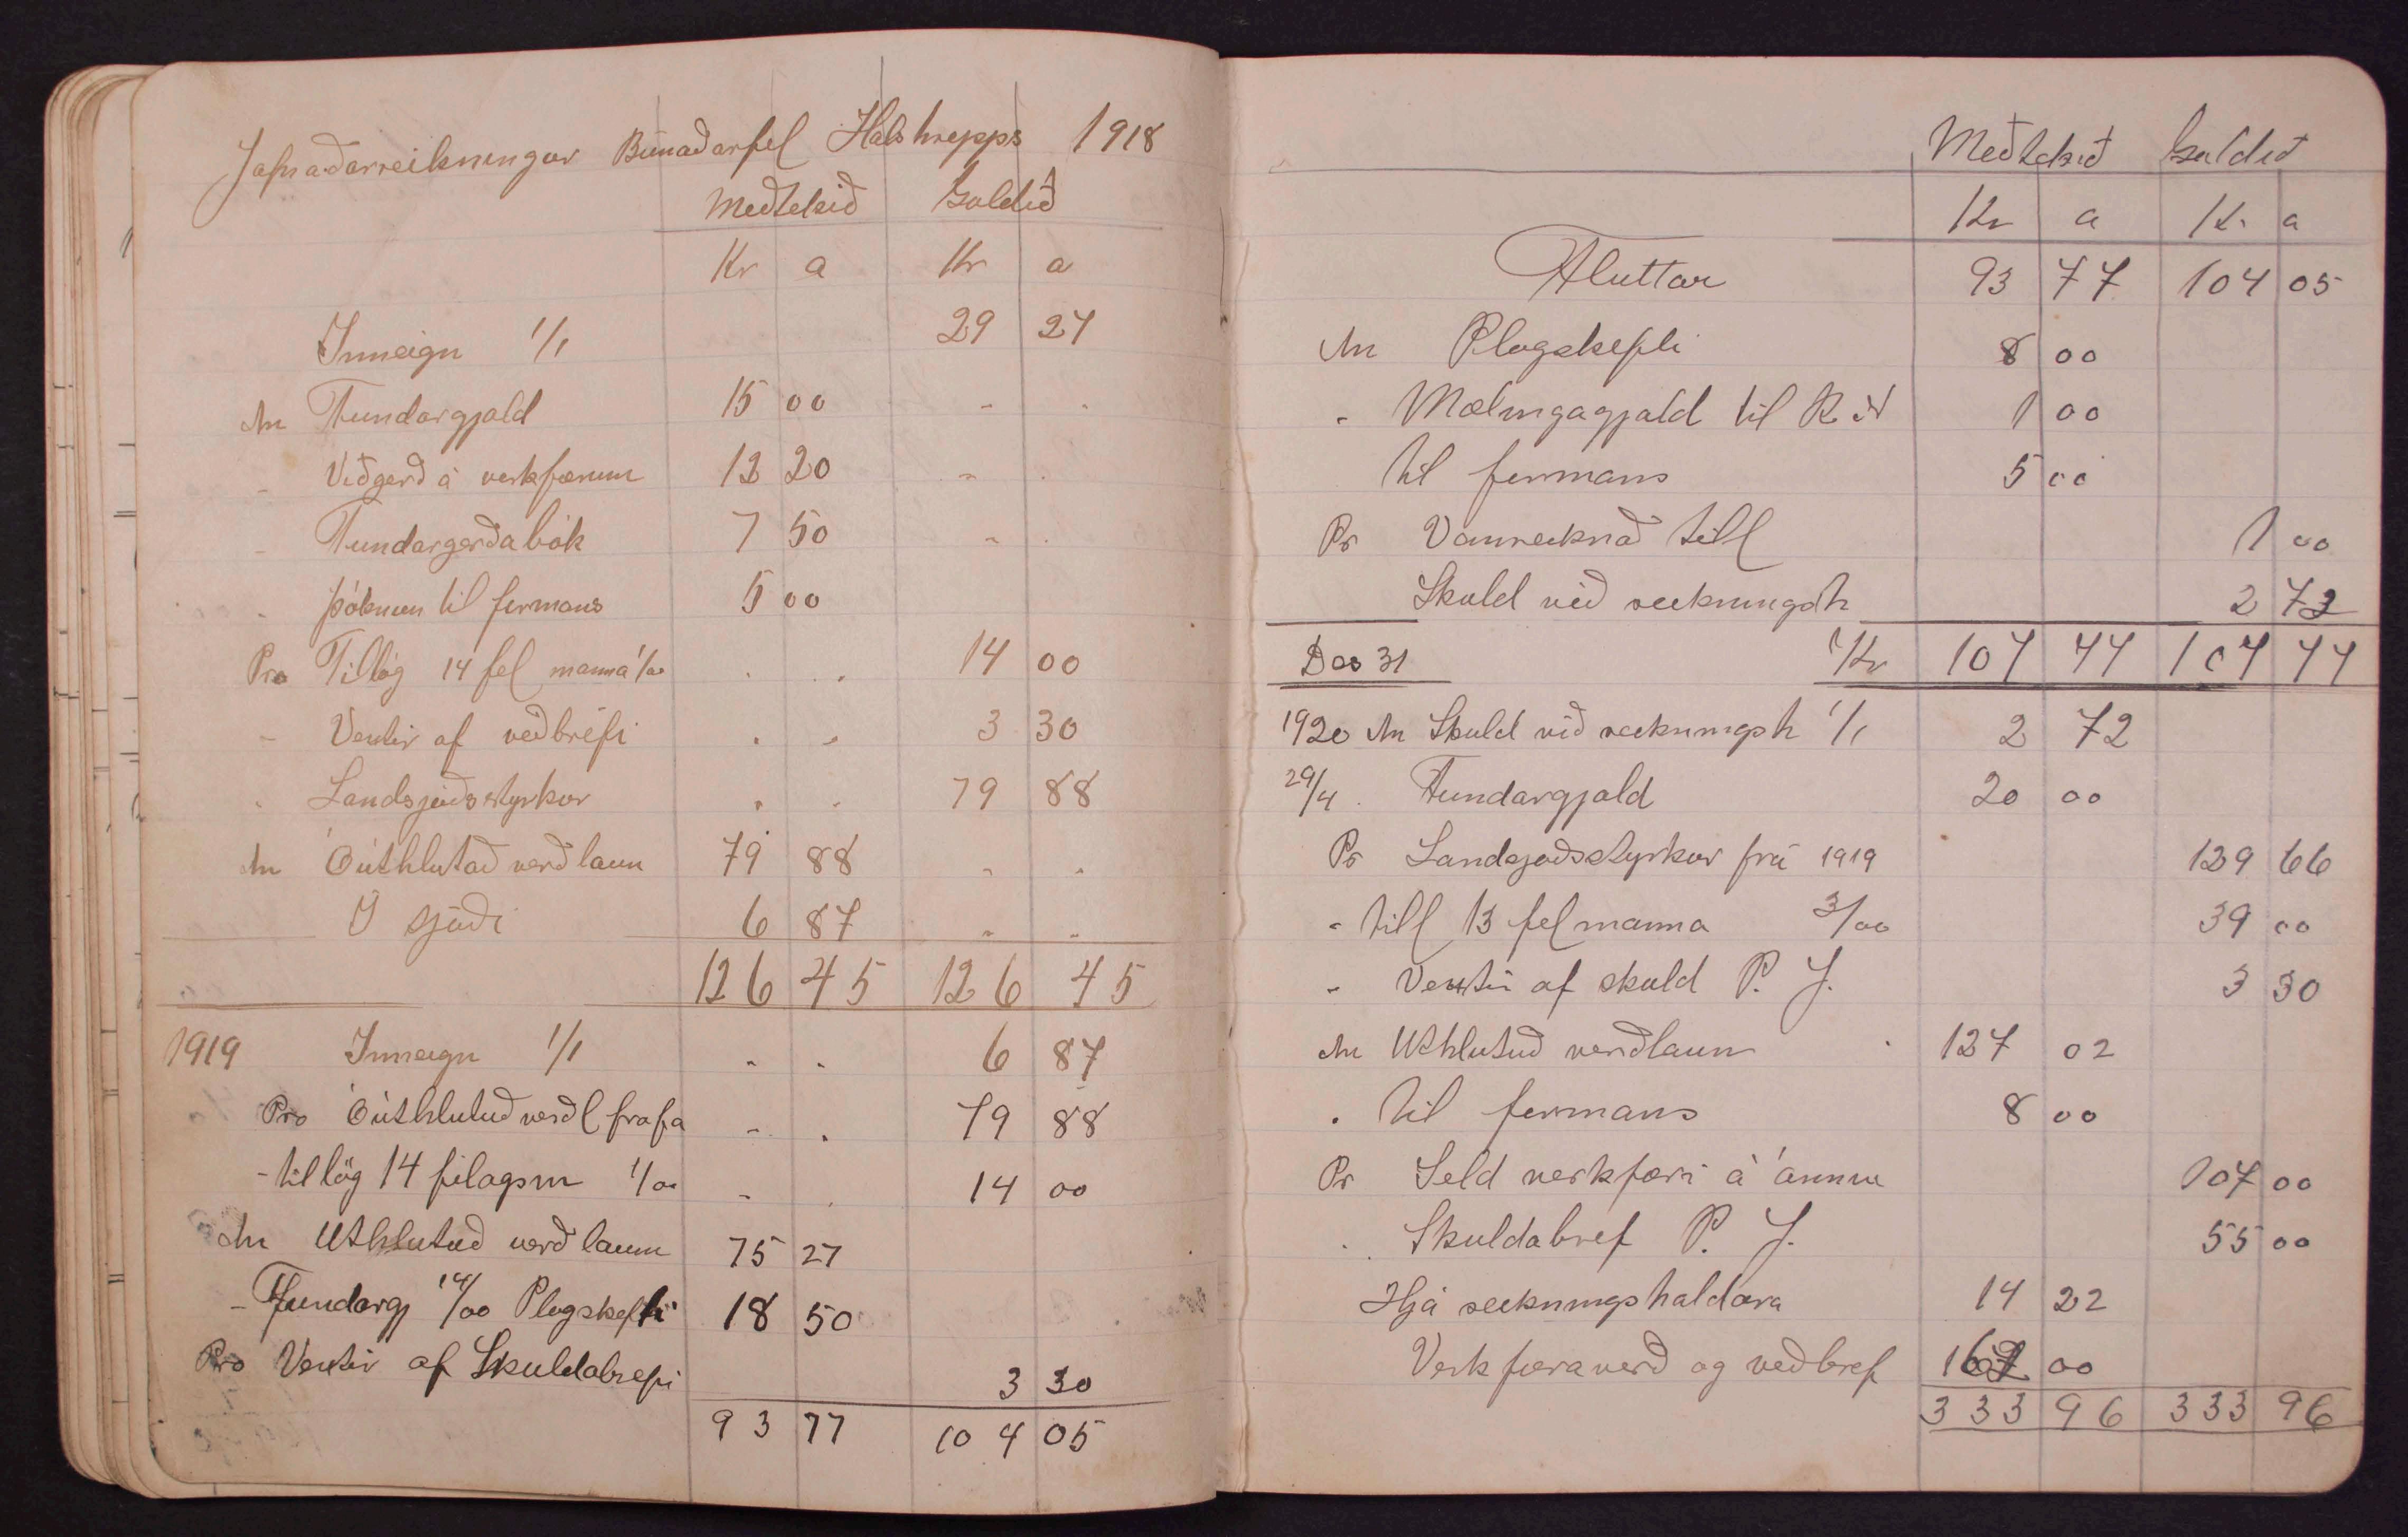 Jafnaðarreikningar Búnaðarfél Hálshrepps 1918
Meðtekið Goldið
Kr a Kr a
Inneign 1/1 29 27
An Fundargjald 15 00 - -
- Viðgerð á verkfærum 12 20 - -
- Fundargerðabók 7 50 - -
- Þóknun til formans 5 00
Pro Tillög 14 fél manna 1/00 - - 14 00
- Vextir af veðbréfi - - 3 30
- Landsjóðsstyrkur - - 79 88
An Óúthlutað verðlaun 79 88 - -
Í sjóði 6 87 - -
126 45 126 45
1919 Inneign 1/1 - - 6 87
Pro Óúthlutuð verðl frá f a - - 79 88
- tillög 14 félagsm 1/00 - - 14 00
An Uthlutuð verðlaun 75 27
- Fundargj 14/00 Plogskefli 18 50
Pro Vextir af Skuldabrefi 3 30
93 77 104 05
Meðtekið Goldið
Kr a Kr a
Fluttar 93 77 104 05
An Plogskefli 8 00
- Mælingagjald til R. N 1 00
til formans 5 00
Pr Vanreiknað till 1 00
Skuld við reikningsh 2 72
Des 31 Kr 107 77 107 77
1920 An Skuld við reikningsh 1/1 2 72
29/4 . Fundargjald 20 00
Pr Landsjoðsstyrkur frá 1919 129 66
- till 13 fél manna 3/00 39 00
- Vextir af skuld P. J. 3 30
An Uthlutuð verðlaun 127 02
. til formans 8 00
Pr Seld verkfæri á árinu 107 00
. Skuldabref P. J. 55 00
Hjá reikningshaldara 14 22
Verkfæraverð og veðbref 162 00
333 96 333 96